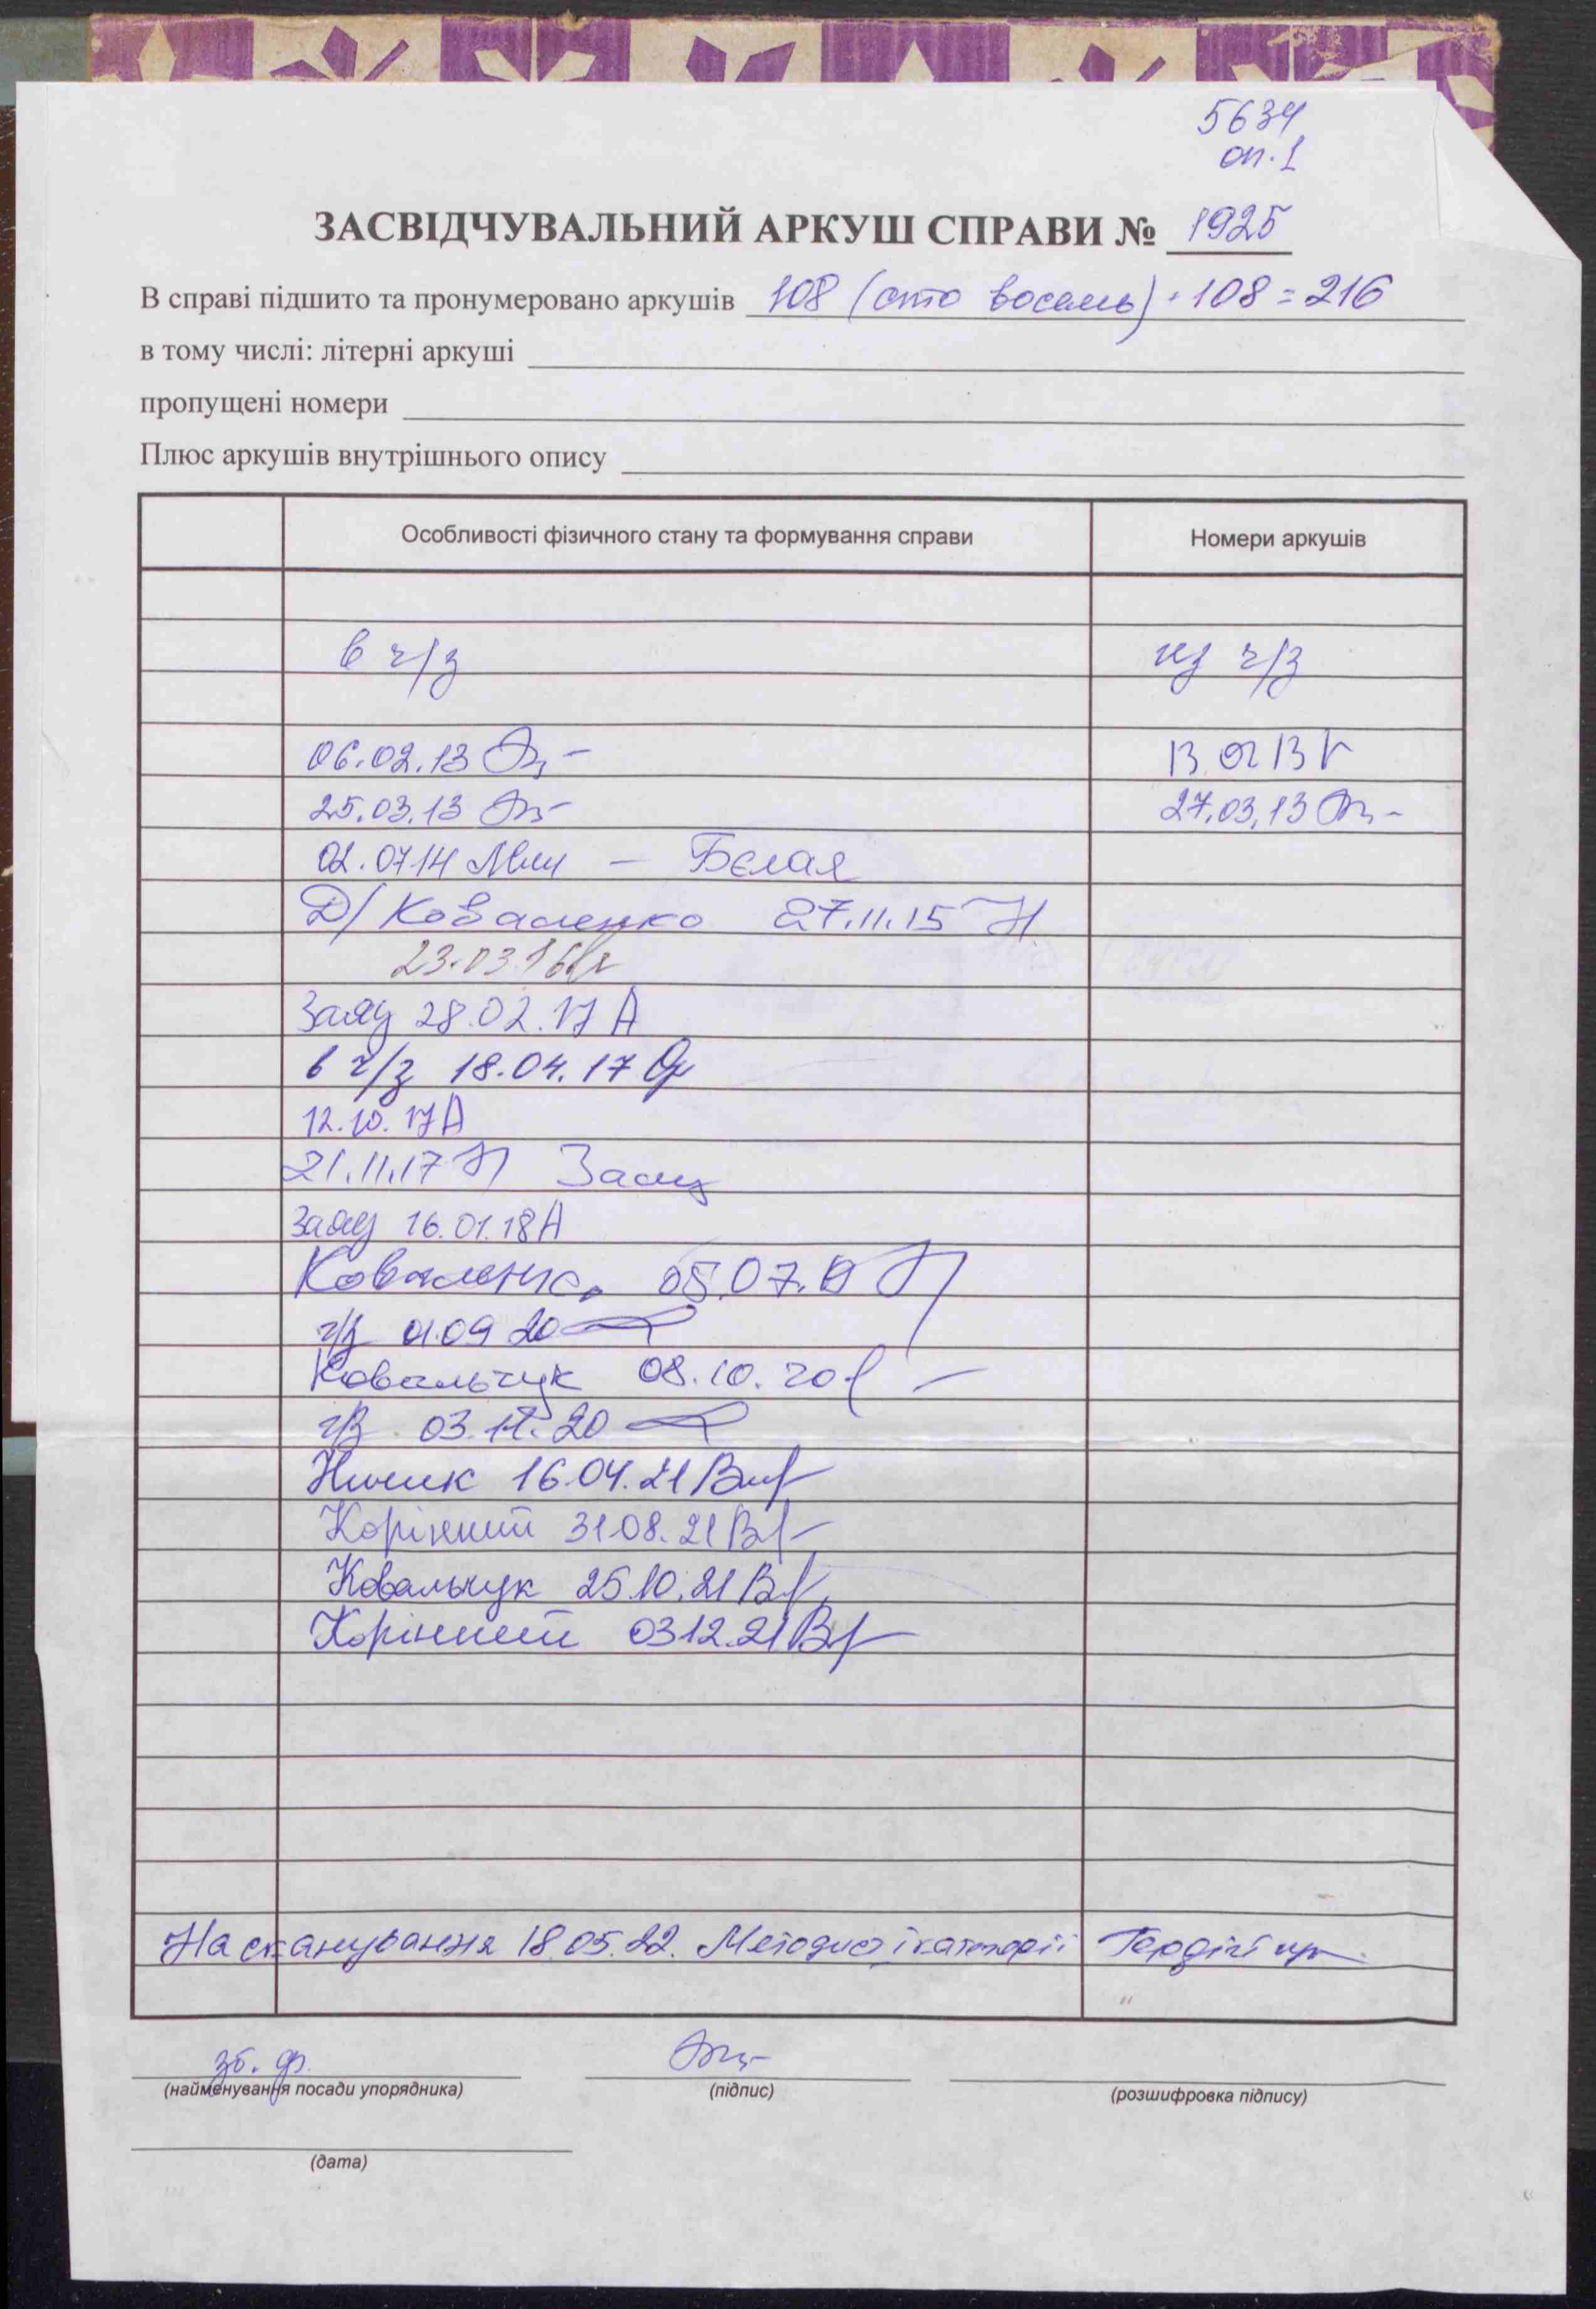 5634
оп. 1
ЗАСВІДЧУВАЛЬНИЙ АРКУШ СПРАВИ № 1925
В справі підшито та пронумеровано аркушів 108 (сто восемь) + 108 = 216
в тому числі: літерні аркуші
пропущені номери
Плюс аркушів внутрішнього опису
Особливості фізичного стану та формування справи Номери аркушів
в ч/з из ч/з
06.02.13 13.02.13
25.03.13 27.03.13
02.07.14 – Бєлая
Д/ Коваленко 27.11.15 Н
23.03.16
28.02.17 А
в ч/з 18.04.17
12.10.17 А
21.11.17
16.01.18 А
Коваленко 05.07.19
ч/з 01.09.20
Ковальчук 08.10.20
ч/з 03.11.20
16.04.21
Корінний 31.08.21
Ковальчук 25.10.21
Корінний 03.12.21
На сканування 18.05.22. Методист І категорії
зб. ф.
(найменування посади упорядника) (підпис) (розшифровка підпису)
(дата)